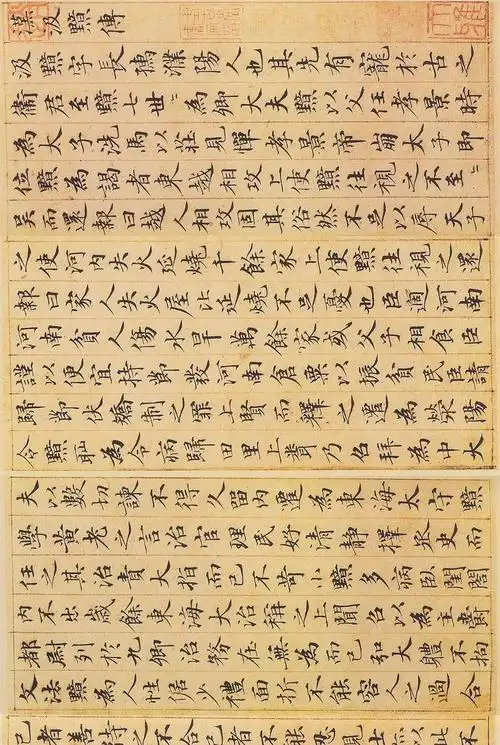 漢汲黯傳
汲黯字長孺濮陽人也其先有寵於古之
衞君至黯七世〻為卿大夫黯以父任孝景時
為太子洗馬以莊見憚孝景帝崩太子即
位黯為謁者東越相攻上使黯往視之不至〻
吳而還報曰越人相攻固其俗然不足以辱天子
之使河內失火延燒千餘家上使黯往視之還
報曰家人失火屋比延燒不足憂也臣過河南
河南貧人傷水旱萬餘家或父子相食臣
謹以便宜持節發河南倉粟以振貧民臣請
歸節伏矯制之罪上賢而釋之遷為滎陽
令黯恥為令病歸田里上聞乃召拜為中大
夫以數切諫不得久留內遷為東海太守黯
學黃老之言治官理民好清靜擇丞史而
任之其治責大指而已不苛小黯多病臥閨閤
內不出歲餘東海大治稱之上聞召以為主爵
都尉列於九卿治務在無為而已弘大體不拘
文法黯為人性倨少禮面折不能容人之過合
己者善待之不合己者不能忍見士亦以此不